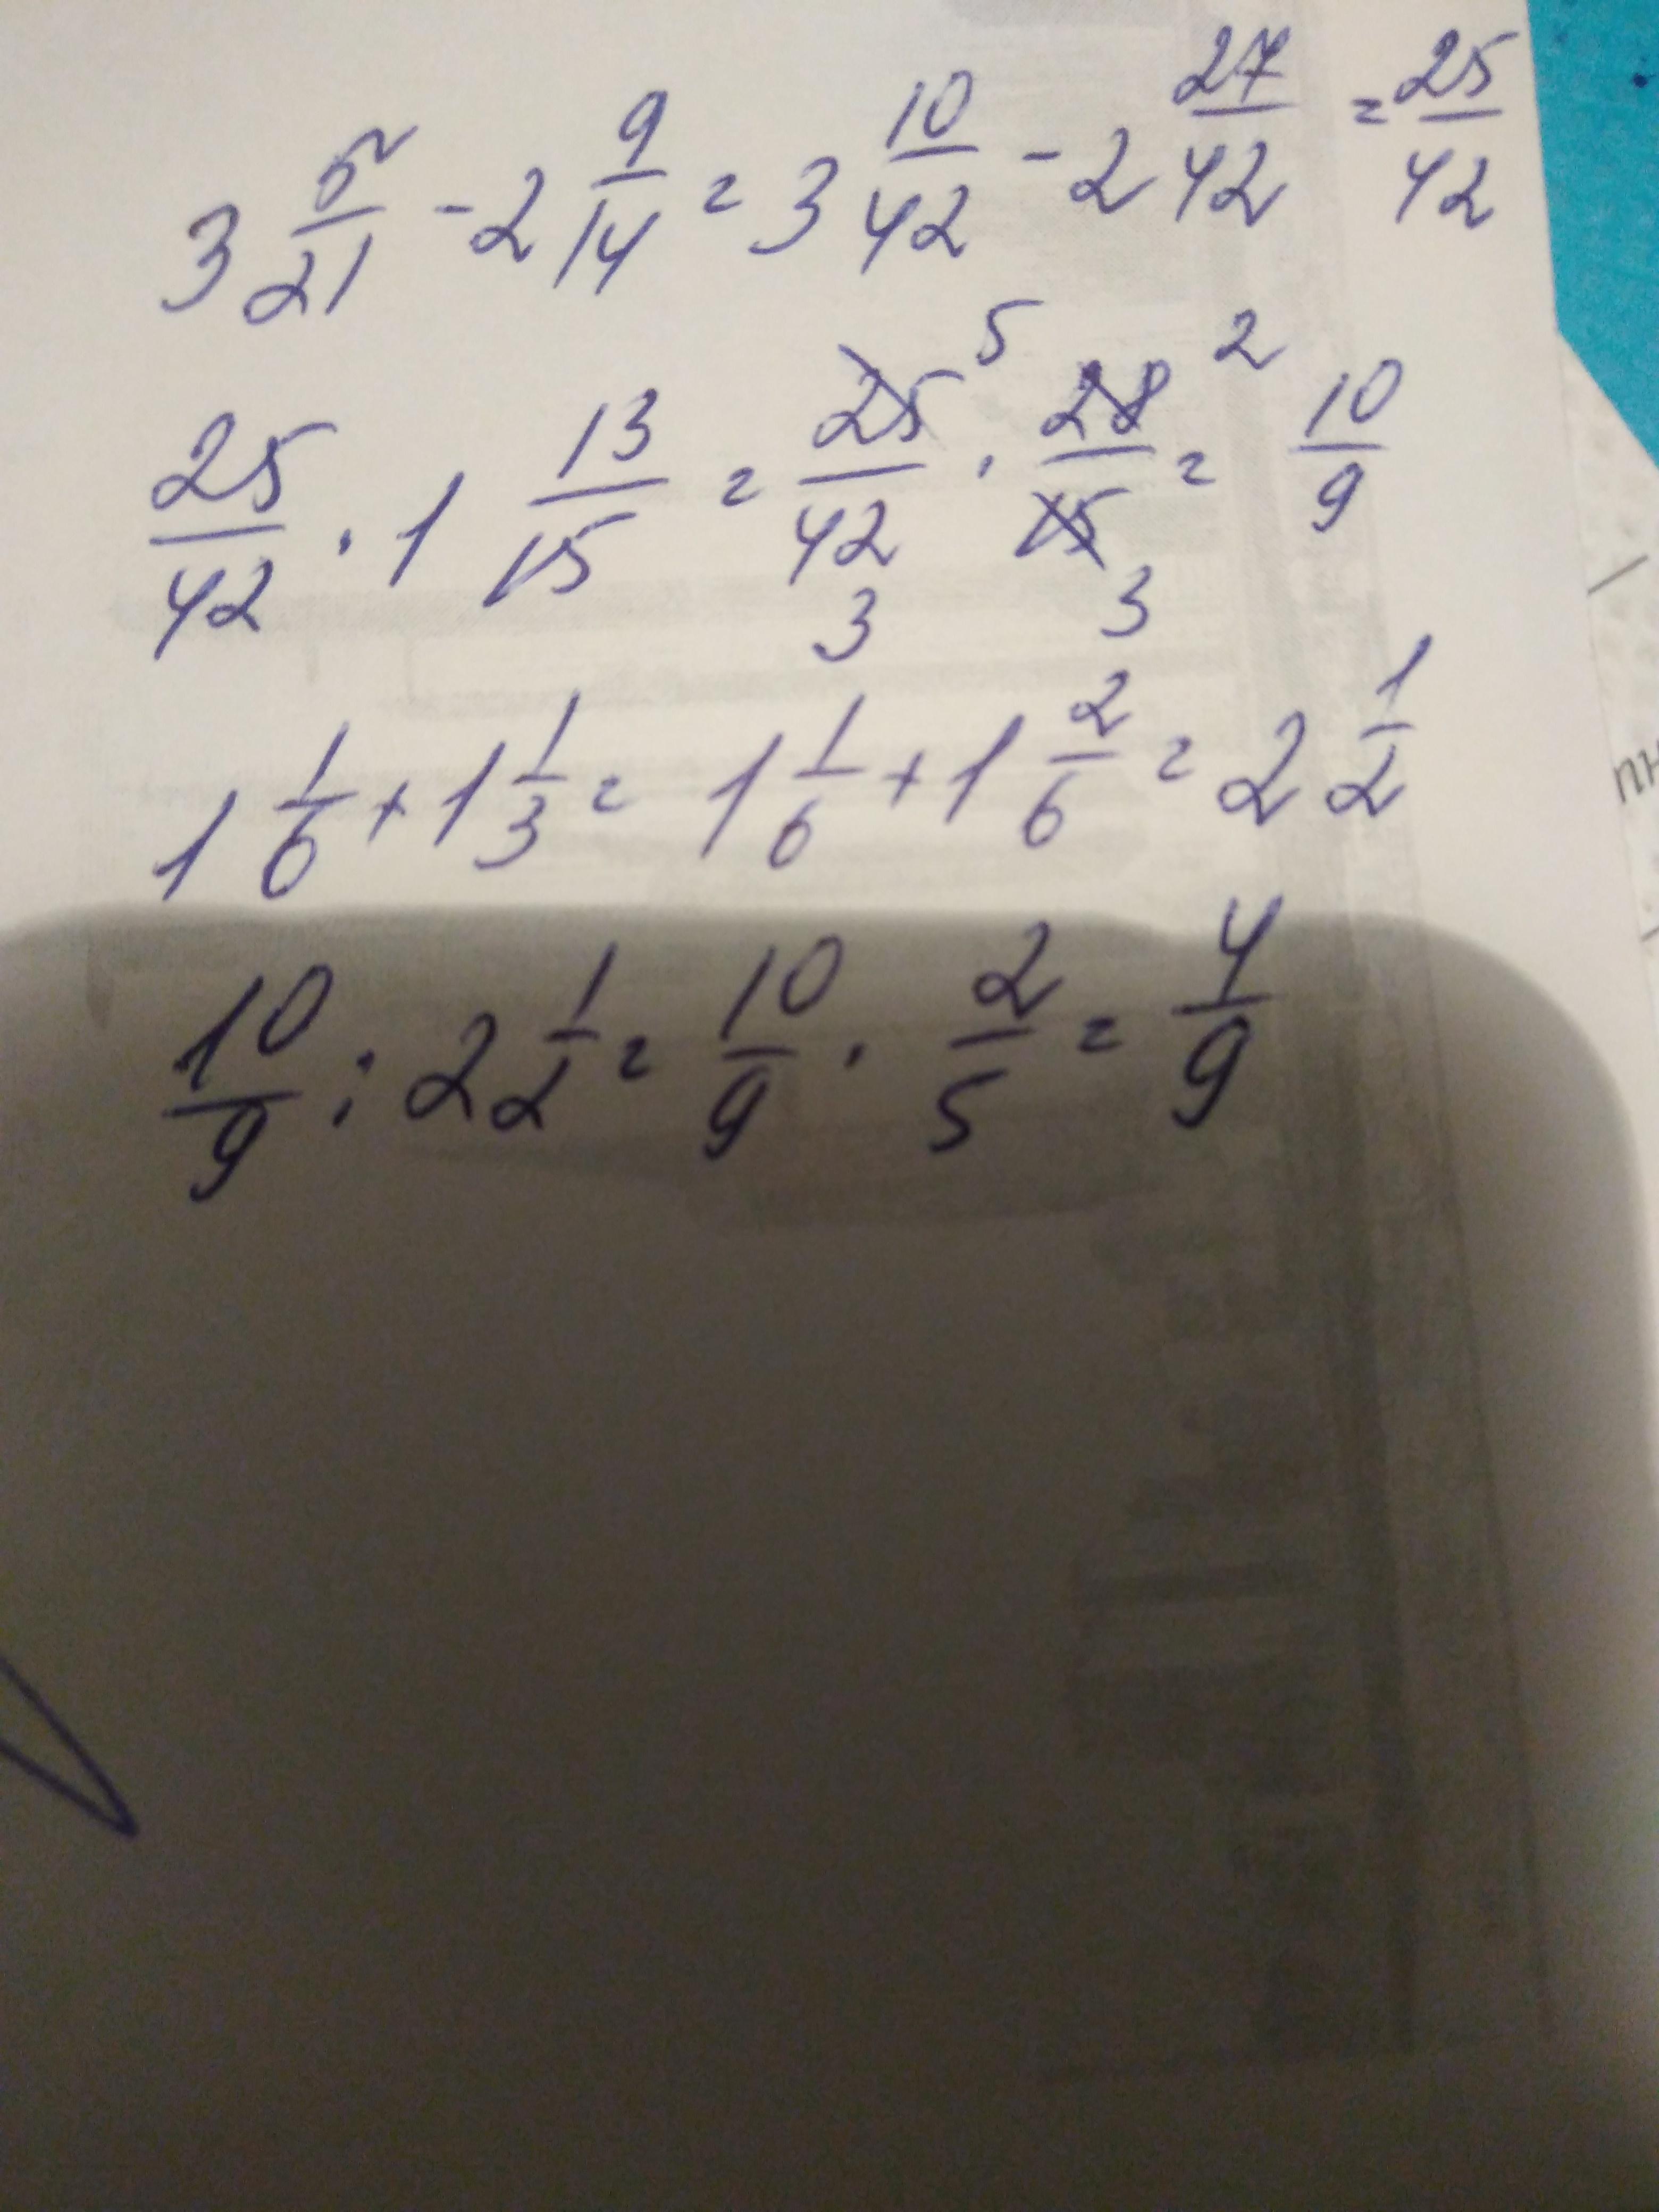 3 5/21 - 2 9/14 = 3 10/42 - 2 27/42 = 25/42
25/42 · 1 13/15 = 25/42 5 3 · 28/15 2 3 = 10/9
1 1/6 + 1 1/3 = 1 1/6 + 1 2/6 = 2 1/2
10/9 : 2 1/2 = 10/9 · 2/5 = 4/9
пн